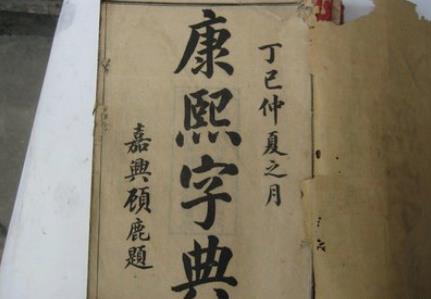 丁巳仲夏之月
康熙字典
嘉興顾鹿題